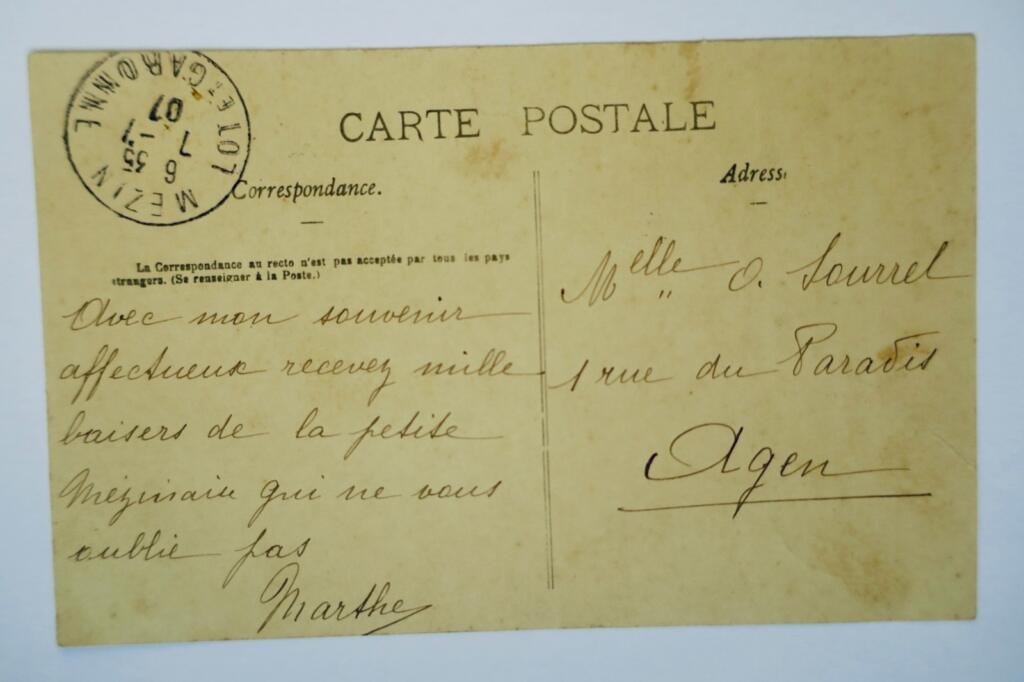 CARTE POSTALE
MEZIN LOT-ET-GARONNE
6 35
7 -7
07
Correspondance.
La Correspondance au recto n'est pas acceptée par tous les pays
étrangers. (Se renseigner à la Poste.)
Avec mon souvenir
affectueux recevez mille
baisers de la petite
qui ne vous
oublie pas
Marthe
Adress
Melle O. Sourrel
1 rue du Paradis
Agen